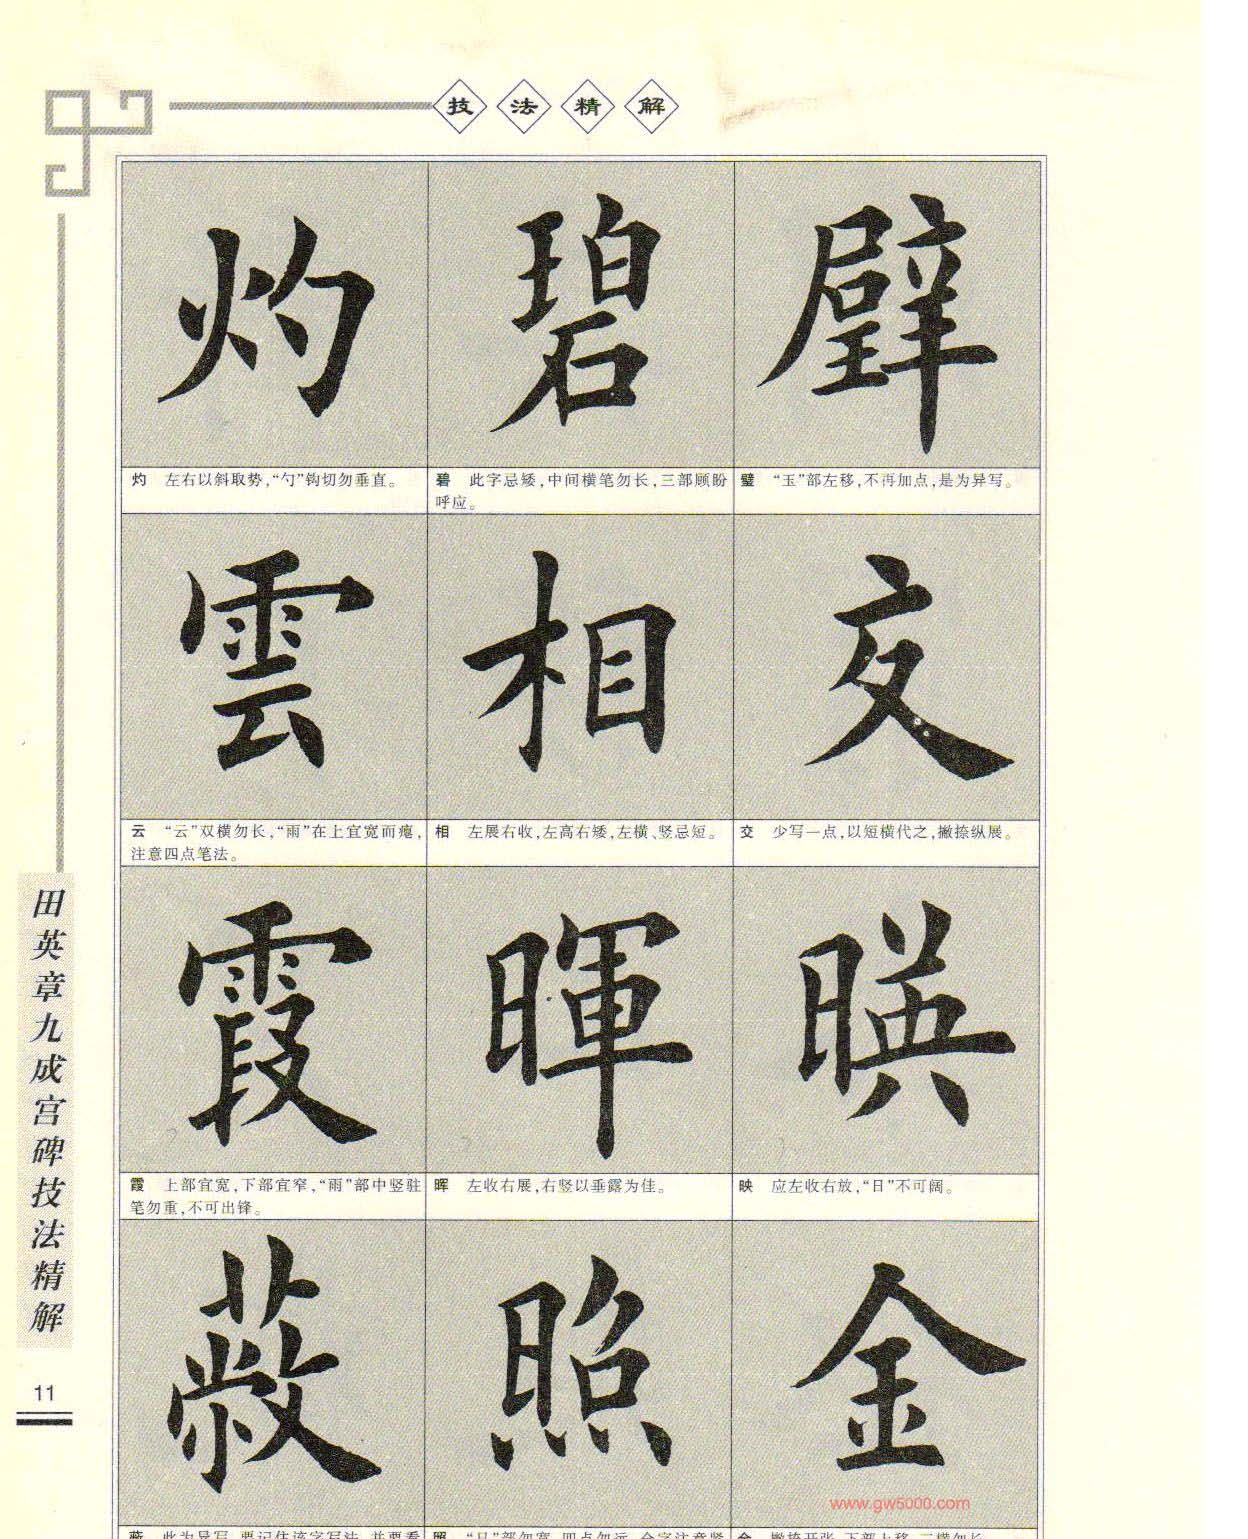 技法精解
灼 碧 璧
灼　左右以斜取势,“勺”钩切勿垂直。
碧　此字忌矮,中间横笔勿长,三部顾盼
呼应。
璧　“玉”部左移,不再加点,是为异写。
雲 相 交
云　“云”双横勿长,“雨”在上宜宽而瘪,
注意四点笔法。
相　左展右收,左高右矮,左横、竖忌短。
交　少写一点,以短横代之,撇捺纵展。
霞 暉 暎
霞　上部宜宽,下部宜窄,“雨”部中竖驻
笔勿重,不可出锋。
晖　左收右展,右竖以垂露为佳。
映　应左收右放,“日”不可阔。
蔽 照 金
蔽　此为异写,要记住该字写法,并要看
照　“日”部勿宽,四点勿远,全字注意紧
金　撇捺开张,下部上移,三横勿长。
www.gw5000.com
田英章九成宫碑技法精解
11